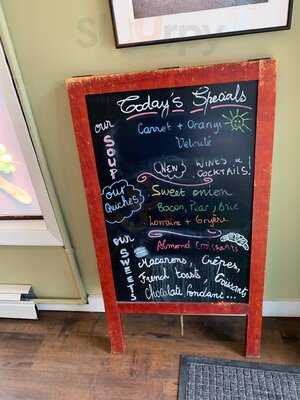 Sirvpy
Today's Specials
our
SOUP
Carret + Orange
Velouté
(NEW) WINES &
COCKTAILS!
our
Quiches
Sweet onion
Bacon, Pear, Brie
Lorraine + Gruyère
our
SWEETS
Almond Croissants
Macarons, Crêpes,
French toasts, Croissants
Chocolate fondant...